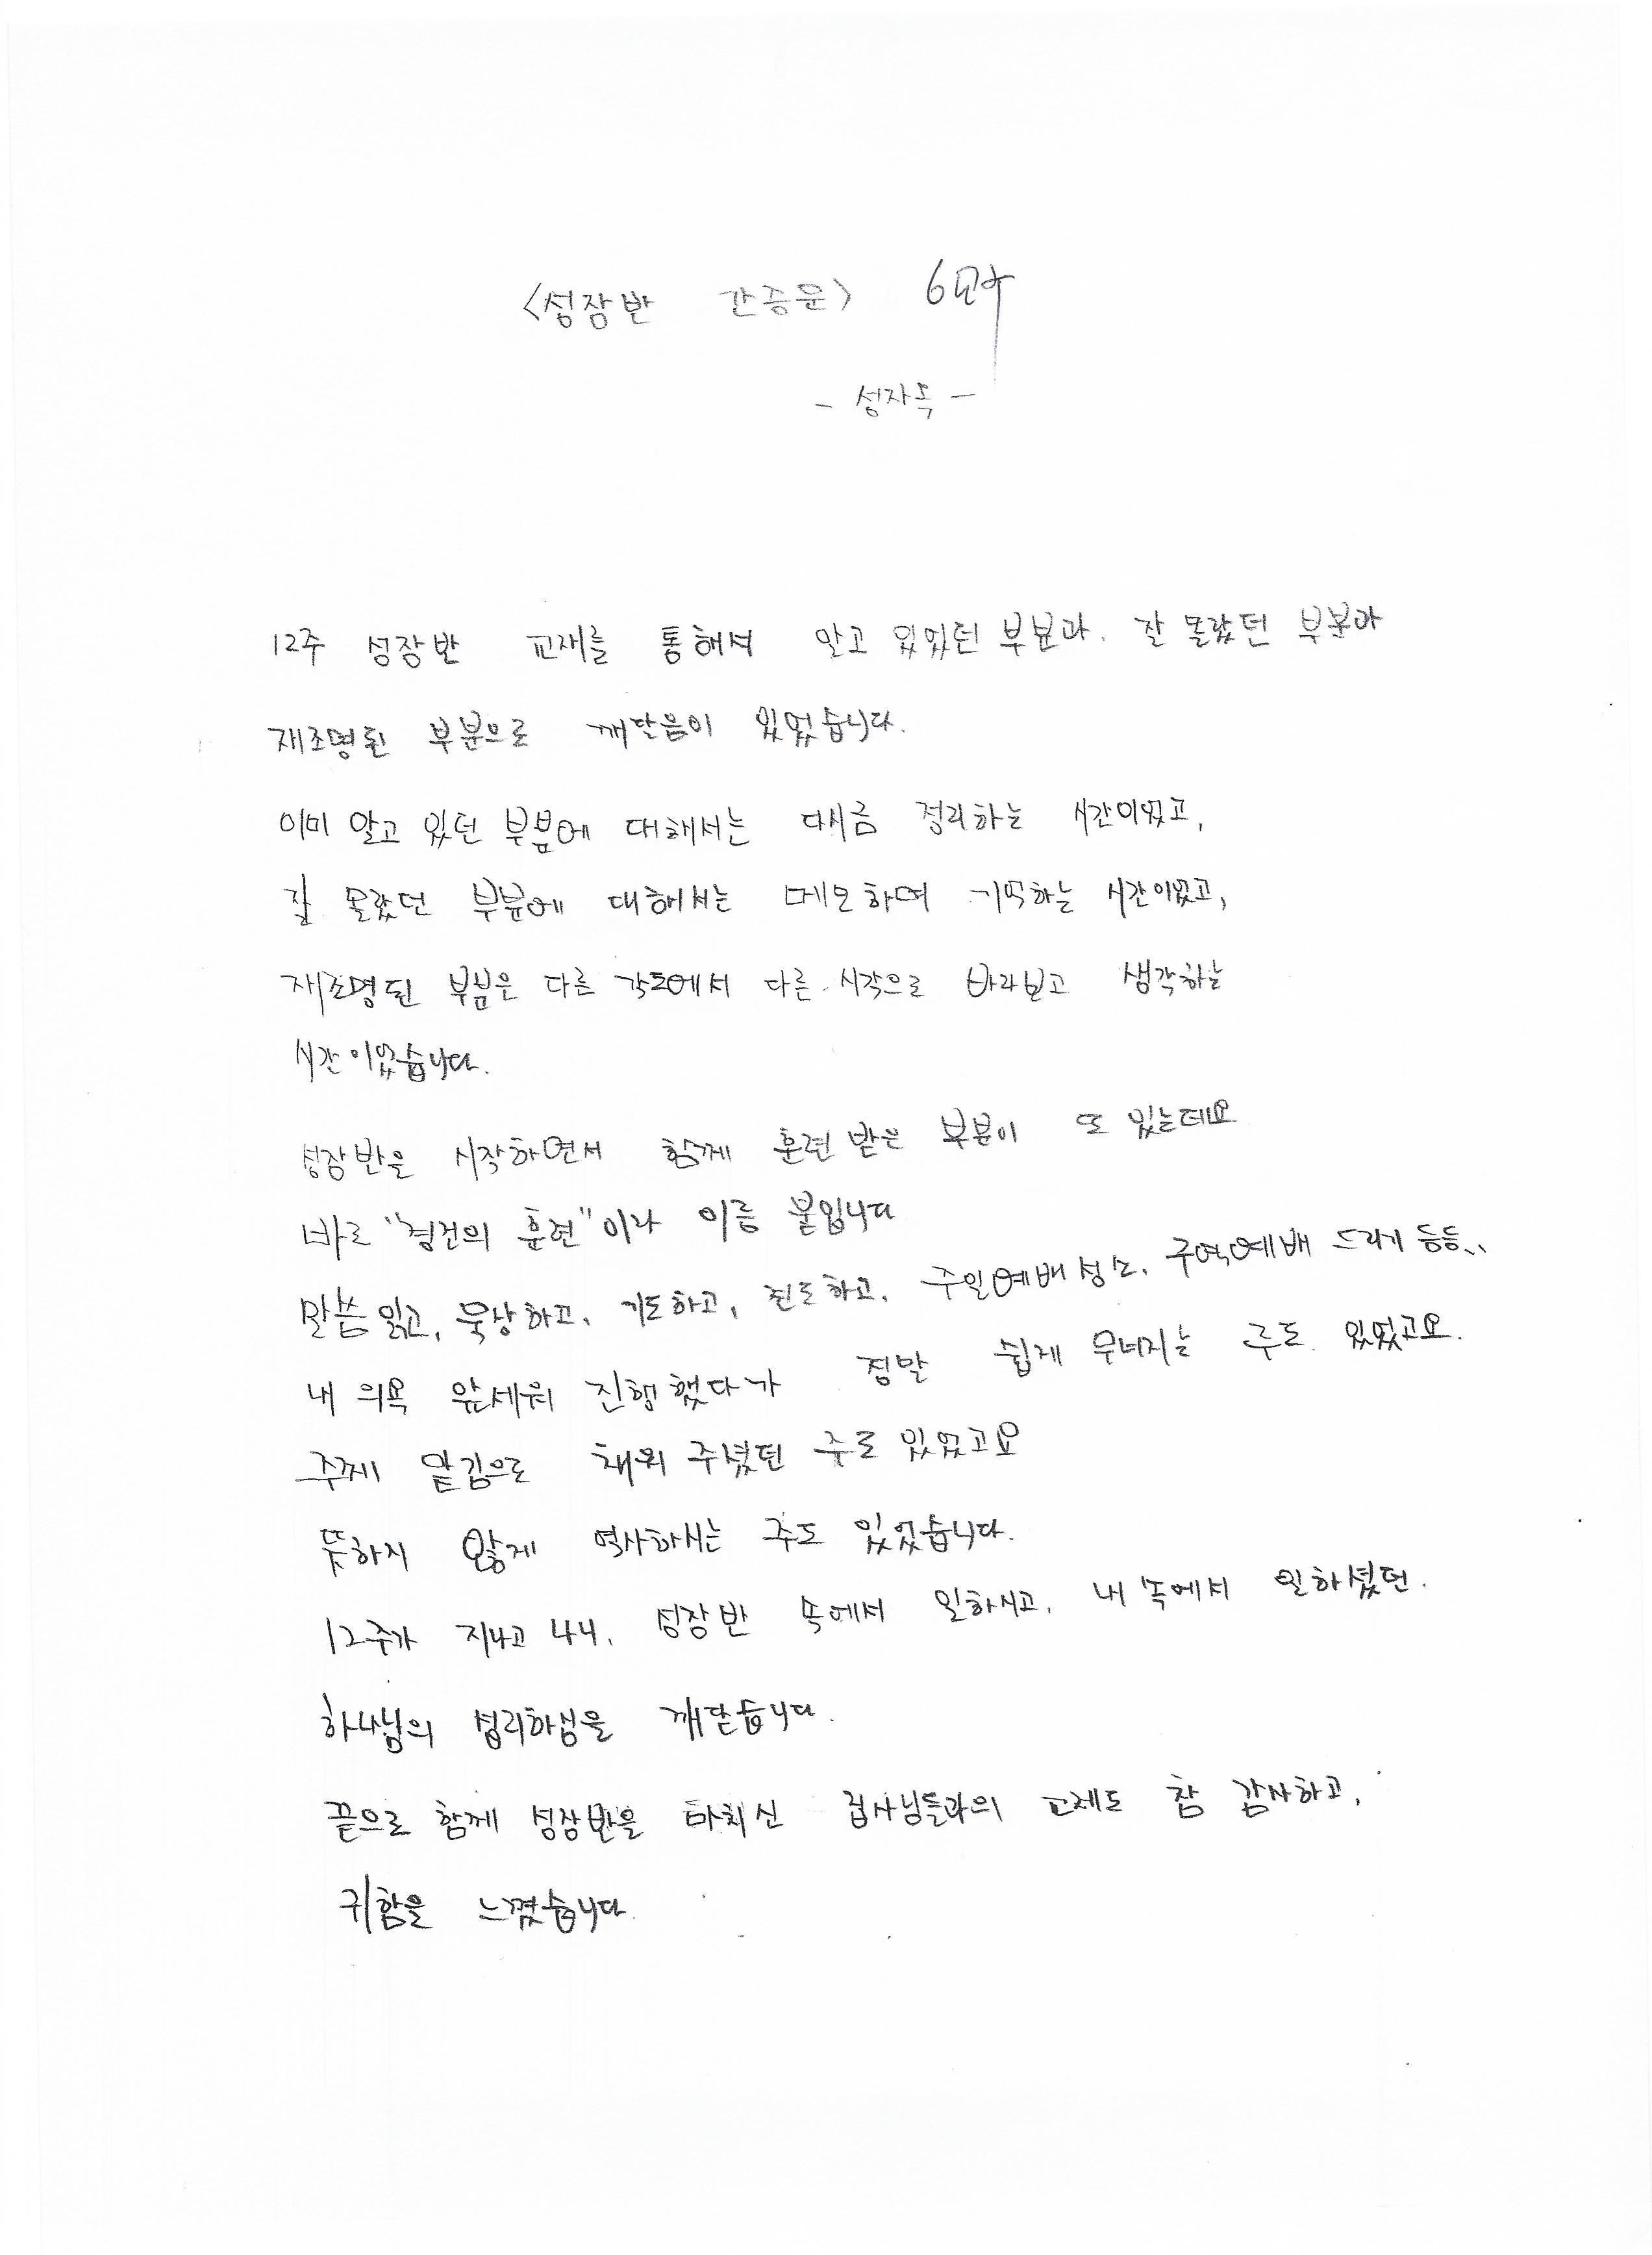 <성장반 간증문> 6여
- 성자독 -
12주 성장반 교재를 통해서 알고 있었던 부분과. 잘 몰랐던 부분과
재조명된 부분으로 깨달음이 있었습니다.
이미 알고 있던 부분에 대해서는 다시금 정리하는 시간이었고,
잘 몰랐던 부분에 대해서는 메모하며 기억하는 시간이었고,
재조명된 부분은 다른 각도에서 다른 시각으로 바라보고 생각하는
시간이었습니다.
성장반을 시작하면서 함께 훈련 받은 부분이 또 있는데요
바로 "경건의 훈련"이라 이름 붙입니다
말씀 읽고, 묵상하고, 기도하고, 전도하고, 주일예배 성수, 구역예배 드리기 등등..
내 의욕 앞세워 진행했다가 정말 쉽게 무너지는 주도 있었고요.
주께 맡김으로 채워 주셨던 주도 있었고요
뜻하지 않게 역사하시는 주도 있었습니다.
12주가 지나고 보니, 성장반 속에서 일하시고, 내 속에서 일하셨던.
하나님의 섭리하심을 깨닫습니다.
끝으로 함께 성장반을 마치신 집사님들과의 교제도 참 감사하고,
귀함을 느꼈습니다.